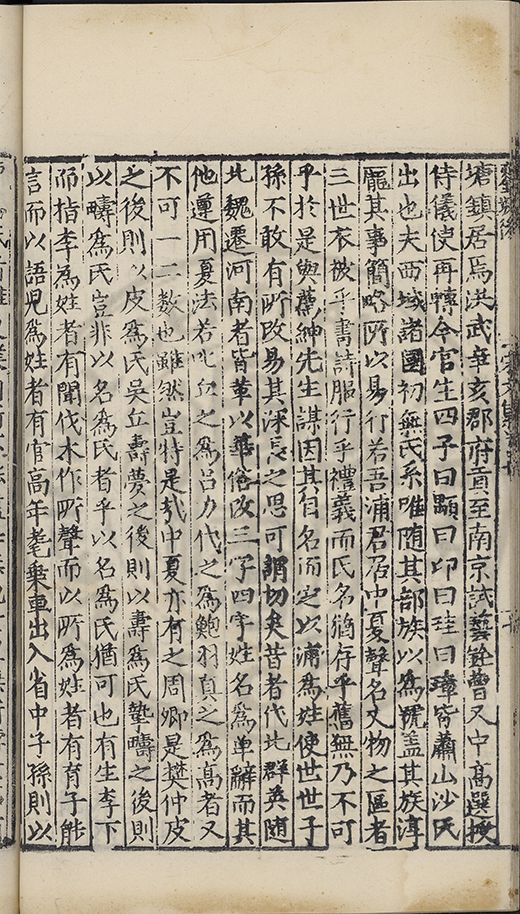 塘鎮居焉洪武辛亥郡府貢至南京試藝銓曹又中高選授
侍儀使再轉今官生四子曰顒曰卬曰珪曰璋皆蕭山沙氏
出也夫西域諸國初無氏系唯隨其部族以為號盖其族淳
厖其事簡略所以易行若吾浦君居中夏聲名文物之區者
三世衣被乎書詩服行乎禮義而氏名猶存乎舊無乃不可
乎於是與薦紳先生謀因其自名而定以浦為姓使世世子
孫不敢有所改易其深長之思可謂切矣昔者代北群英随
北魏遷河南者皆革以華俗改三字四字姓名為单辭而其
他遵用夏法若叱丘之為吕力代之為鮑羽真之為高者又
不可一二数也雖然豈特是哉中夏亦有之周卿是樊仲皮
之後則以皮為氏吴丘壽夢之後則以壽為氏摯疇之後則
以疇為氏豈非以名為氏者乎以名為氏猶可也有生李下
而指李為姓者有聞伐木作所聲而以所為姓者有育子能
言而以語兒為姓者有官高年耄乗車出入省中子孫則以